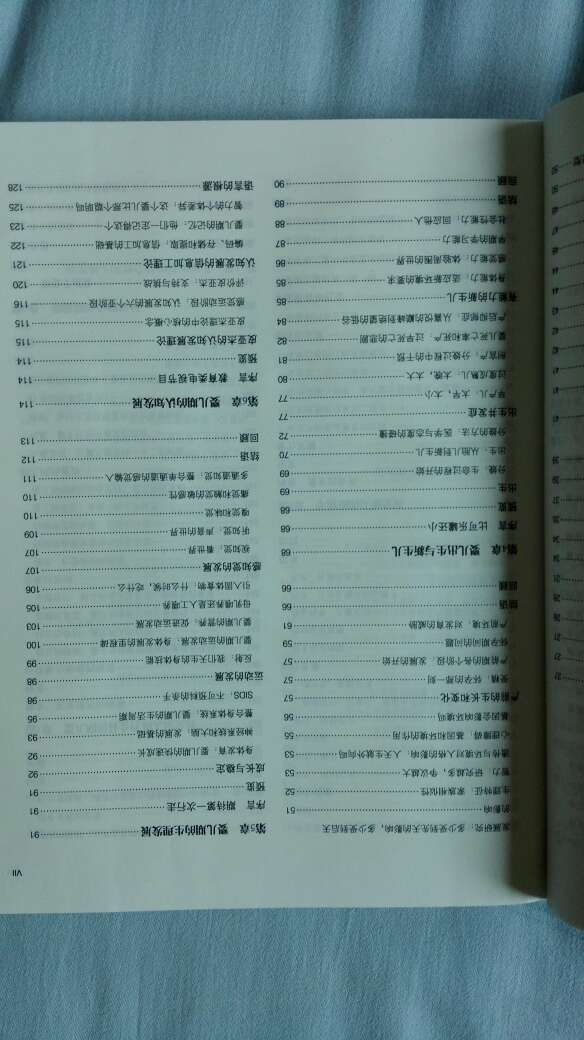 VII
发展研究：多少受到先天的影响，多少受到后天
的影响 51
生理特征：家族相似性 52
智力：研究越多，争议越大 53
遗传与环境对人格的影响：天人生就外向吗 53
心理障碍：基因和环境的作用 55
基因会影响环境吗 56
产前的生长和变化 57
受精：怀孕的那一刻 57
产前期的各个阶段：发展的开始 57
怀孕期间的问题 59
产前环境：对发育的威胁 61
结语 66
回顾 66
第4章 婴儿出生与新生儿 68
序言 比可乐罐还小 68
预览 68
出生 69
分娩：生命过程的开始 69
出生：从胎儿到新生儿 70
分娩的方法：医学与态度的碰撞 72
出生并发症 77
早产儿：太早，太小 77
过度成熟儿：太晚，太大 80
剖宫产：分娩过程中的干预 81
婴儿死亡率和死产：过早死亡的悲剧 82
产后抑郁：从喜悦的巅峰到绝望的低谷 84
有能力的新生儿 85
身体能力：适应新环境的要求 85
感觉能力：体验周围的世界 86
早期的学习能力 87
社会性能力：回应他人 88
结语 89
回顾 90
第5章 婴儿期的生理发展 91
序言 期待第一次行走 91
预览 91
成长与稳定 92
身体发育：婴儿期的快速成长 92
神经系统和大脑：发展的基础 93
整合身体系统：婴儿期的生活周期 95
SIDS：不可预料的杀手 98
运动的发展 98
反射：我们天生的身体技能 99
婴儿期的运动发展：身体发展的里程碑 100
婴儿期的营养：促进运动发展 103
母乳喂养还是人工喂养 105
引入固体食物：什么时候，吃什么 106
感知觉的发展 107
视知觉：看世界 107
听知觉：声音的世界 109
嗅觉和味觉 110
痛觉和触觉的敏感性 110
多通道知觉：整合单通道的感觉输入 111
结语 112
回顾 113
第6章 婴儿期的认知发展 114
序言 教育类电视节目 114
预览 114
皮亚杰的认知发展理论 115
皮亚杰理论中的核心概念 115
感觉运动阶段：认知发展的六个亚阶段 116
评价皮亚杰：支持与挑战 120
认知发展的信息加工理论 121
编码、存储和提取：信息加工的基础 122
婴儿期的记忆：他们一定记得这个 123
智力的个体差异：这个婴儿比那个聪明吗 125
语言的根源 128